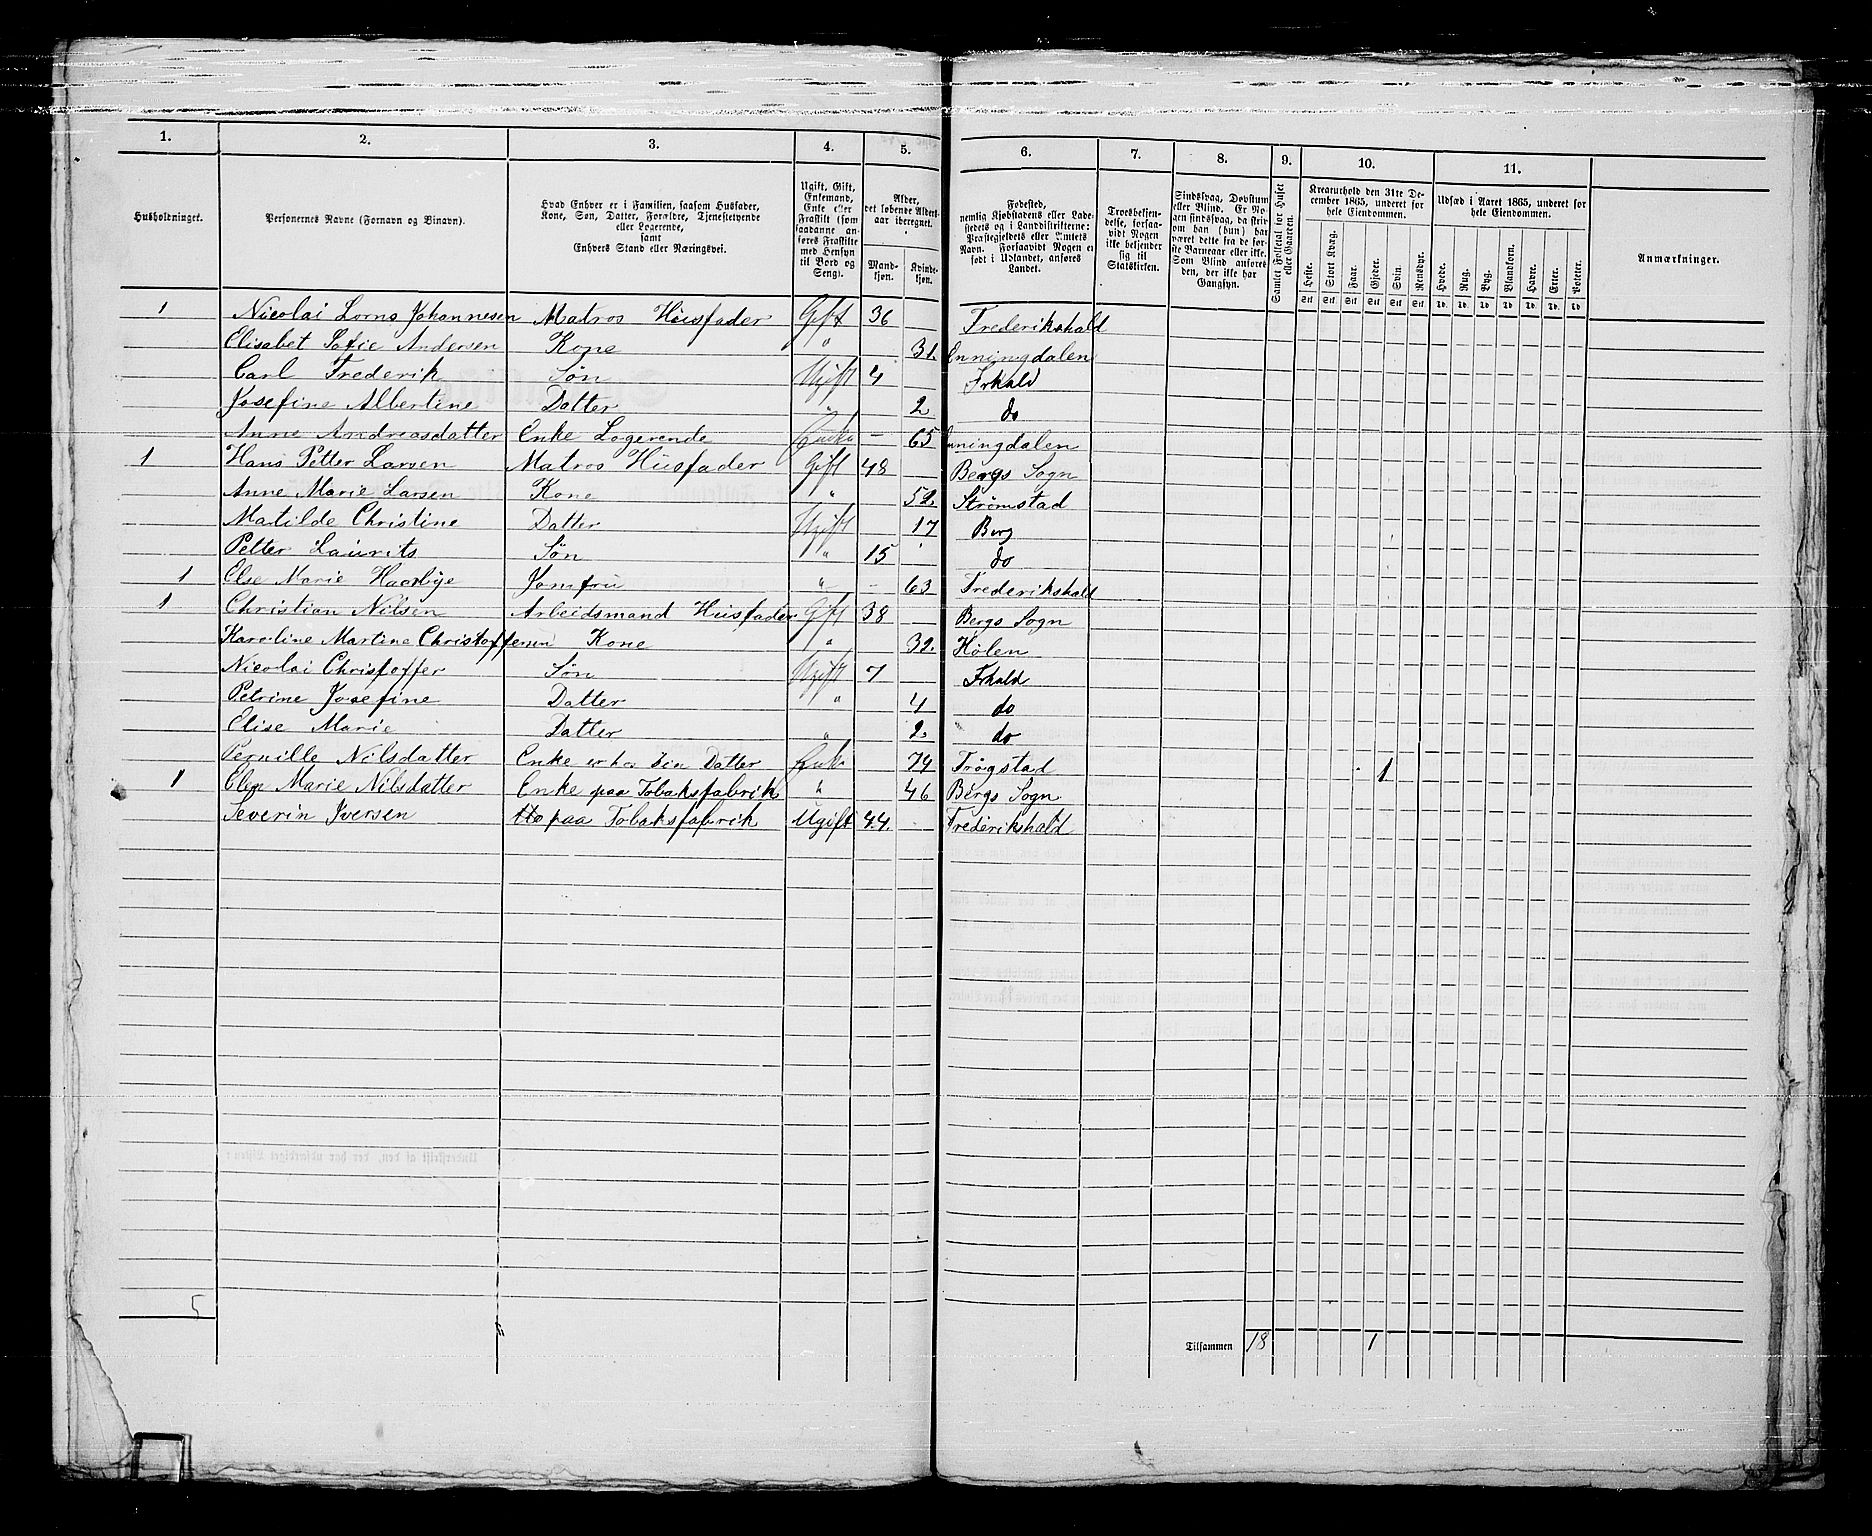 1. 2. 3. 4. 5. 6. 7. 8. 9. 10. 11.
Husholdninger.
Personernes Navne (Fornavn og Binavn).
Hvad Enhver er i Familien, saasom Husfader,
Kone, Søn, Datter, Forældre, Tjenestetyende
eller Logerende,
samt
Enhvers Stand eller Næringsvei.
Ugift, Gift,
Enkemand,
Enke eller
Fraskilt (som
saadanne an-
føres Fraskilte
med Hensyn
til Bord og
Seng).
Alder,
det løbende Alders-
aar iberegnet.
Mand-
kjøn.
Kvinde-
kjøn.
Fødested,
nemlig Kjøbstadens eller Lade-
stedets og i Landdistrikterne:
Præstegjeldets eller Amtets
Navn. Forsaavidt Nogen er
født i Udlandet, anføres
Landet.
Troesbekjen-
delse, forsaa-
vidt Nogen
ikke bekjender
sig til
Statskirken.
Sindssvag, Døvstum
eller Blind. Er No-
gen sindssvag, da skriv
om han (hun) har
været dette fra de før-
ste Barneaar eller ikke.
Som Blind anføres
den, der ikke har
Gangsyn.
Samlet Folketal for Huset
eller Gaarden.
Kreaturhold den 31te De-
cember 1865, underet for
hele Eiendommen.
Heste. Stort Kvæg. Faar. Gjeder. Svin. Rensdyr.
Udsæd i Aaret 1865, underet for
hele Eiendommen.
Hvede. Rug. Byg. Blandkorn. Havre. Erter. Poteter.
Anmærkninger.
Stk Stk Stk Stk Stk Stk Td. Td. Td. Td. Td. Td. Td
1 Nicolai Lorns Johannesen Matros Husfader Gift 36 Frederikshald
Elisabet Sofie Andersen Kone " 31. Enningdalen
Carl Frederik Søn Ugift 4 Frhald
Josefine Albertine Datter " 2 do
Anne Andreasdatter Enke Logerende Enke — 65 Enningdalen
1 Hans Petter Larsen Matros Husfader Gift 48 Bergs Sogn
Anne Marie Larsen Kone " 52. Strømstad
Matilde Christine Datter Ugift 17 Berg
Petter Laurits Søn " 15 do
1 Else Marie Haarbye Jomfru " - 63 Frederikshald
1 Christian Nilsen Arbeidsmand Husfader Gift 38 Bergs Sogn
Kareline Martine Christoffersen Kone " 32. Hølen
Nicolai Christoffer Søn Ugift 7 Frhald
Petrine Josefine Datter " 4 do
Elise Marie Datter " 2. do
Pernille Nilsdatter Enke er hos sin Datter Enke 74 Trøgstad 1
1 Elen Marie Nilsdatter Enke paa Tobaksfabrik " 46 Bergs Sogn
Severin Iversen paa Tobaksfabrik Ugift 44. Frederikshald
5
Tilsammen 18 1